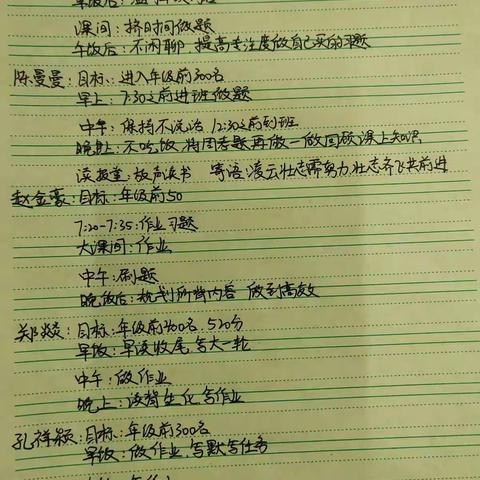 课间：挤时间做题
午饭后：不闲聊，提高专注度做自己买的习题
陈曼曼：目标：进入年级前300名
早上：7:30之前进班做题
中午：保持不说话 12:30之前到班
晚上：不吃饭，将周考题再做一做回顾课上知识
读报堂：放声读书 寄语：凌云壮志需努力,壮志齐飞共前进
赵金豪：目标：年级前50
7:20-7:35:作业习题
大课间：作业
中午：刷题
晚饭后：规划所背内容 做到高效
郑燚：目标：年级前200名，520分
早饭：早读收尾，写大一轮
中午：做作业
晚上：读背生化，写作业
孔祥颍：目标：年级前300名
早饭：做作业，写默写任务